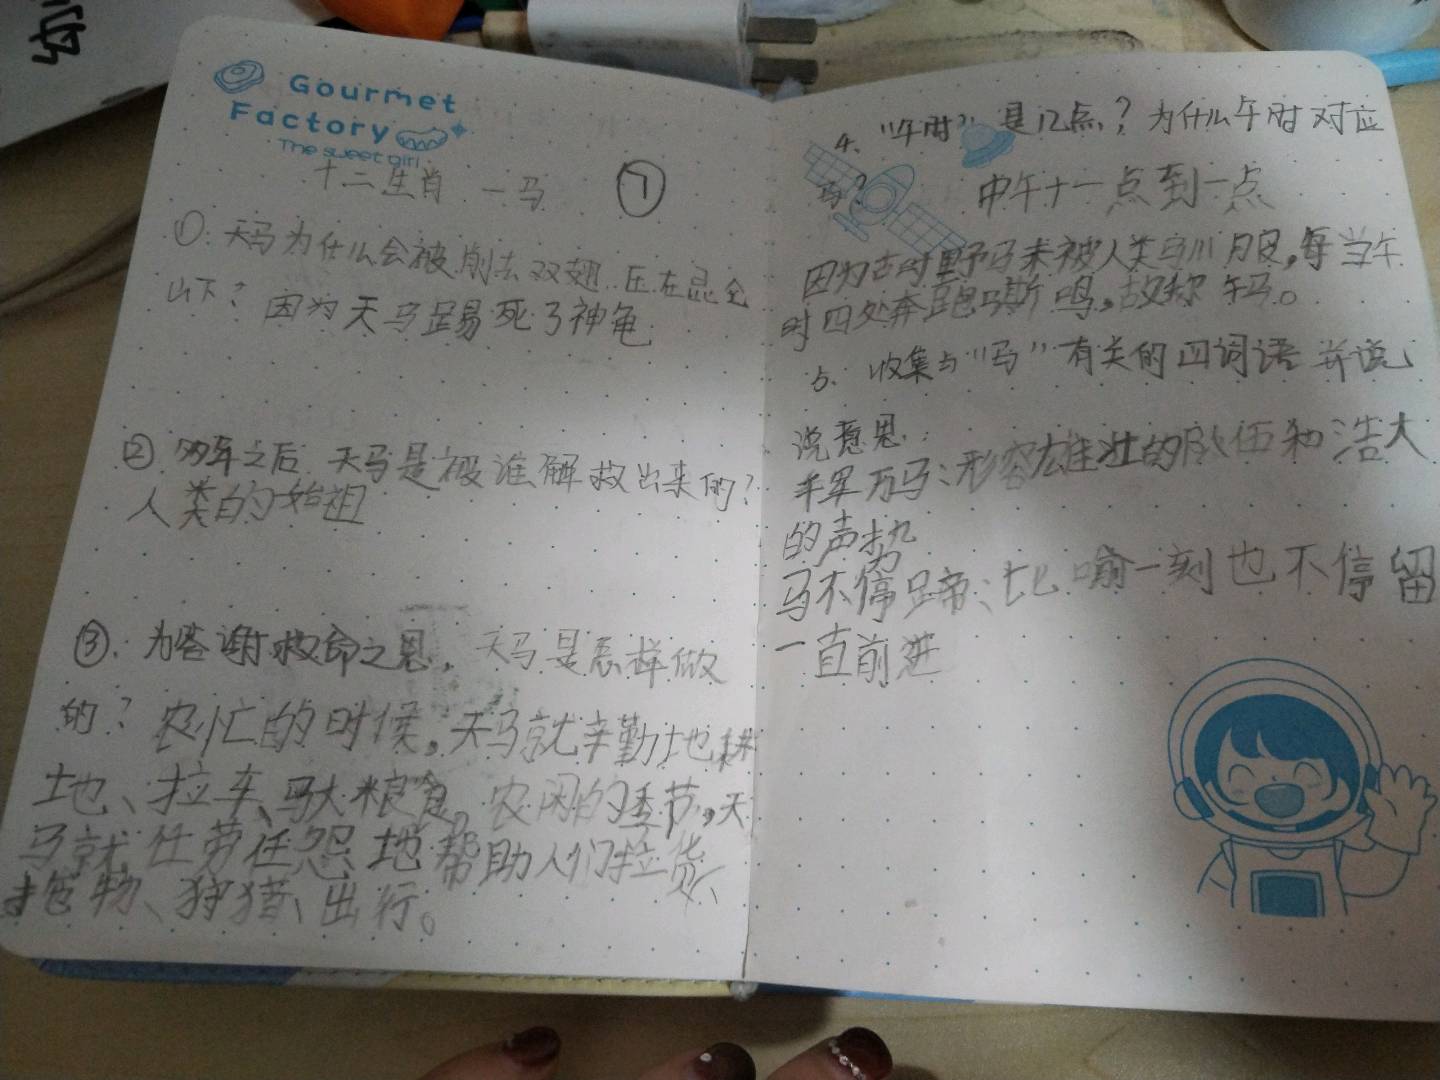 Gourmet
Factory
The sweet girl
十二生肖 一马 ⑦
①. 天马为什么会被削去双翅. 压在昆仑
山下? 因为天马踢死了神龟
② 多年之后 天马是被谁解救出来的?
人类的始祖
③. 为答谢救命之恩, 天马是怎样做
的? 农忙的时候,天马就辛勤地耕
地、拉车、驮粮食。农闲的季节,天
马就任劳任怨地帮助人们拉货、
拖物、狩猎、出行。
4. "午时" 是几点? 为什么午时对应
马? 中午十一点到一点
因为古时野马未被人类驯服,每当午
时四处奔跑嘶鸣,故称午马。
5. 收集与"马"有关的四词语 并说
说意思.
千军万马:形容雄壮的队伍和浩大
的声势
马不停蹄:比喻一刻也不停留
一直前进